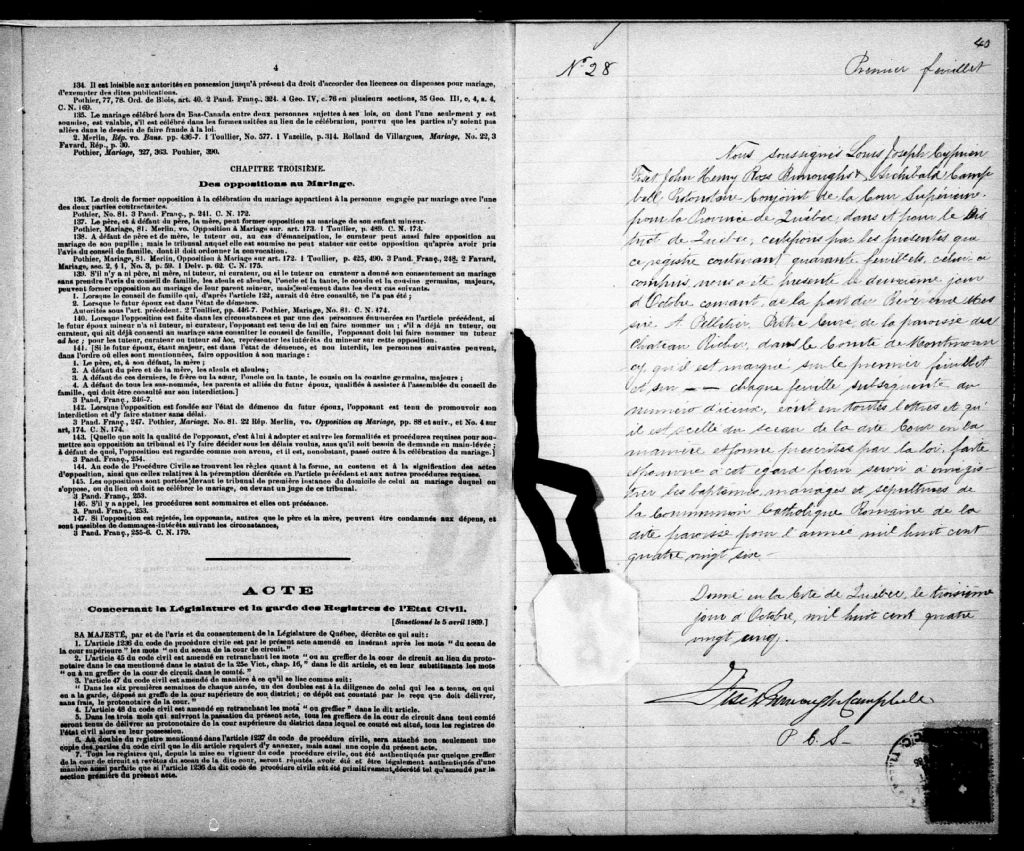 4
134. Il est loisible aux autorités en possession jusqu'à présent du droit d'accorder des licences ou dispenses pour mariage,
d'exempter des dites publications.
Pothier, 77, 78. Ord. de Blois, art. 40. 2 Pand. Franç., 324. 4 Geo. IV, c. 76 en plusieurs sections, 35 Geo. III, c. 4, s. 4,
C. N. 169.
135. Le mariage célébré hors du Bas-Canada entre deux personnes sujettes à ses lois, ou dont l'une seulement y est
soumise, est valable, s'il est célébré dans les formes usitées au lieu de la célébration, pourvu que les parties n'y soient pas
allées dans le dessein de faire fraude à la loi.
2. Merlin, Rép. vo. Bans. pp. 436-7. 1 Toullier, No. 577. 1 Vazeille, p. 314. Rolland de Villargues, Mariage, No. 22, 3
Favard, Rép., p. 30.
Pothier, Mariage, 327, 363. Pouhier, 390.
CHAPITRE TROISIÈME.
Des oppositions au Mariage.
136. Le droit de former opposition à la célébration du mariage appartient à la personne engagée par mariage avec l'une
des deux parties contractantes.
Pothier, No. 81. 3 Pand. Franç., p. 241. C. N. 172.
137. Le père, et à défaut du père, la mère, peut former opposition au mariage de son enfant mineur.
Pothier, Mariage, 81. Merlin, vo. Opposition à Mariage sur. art. 173. 1 Toullier, p. 489. C. N. 173.
138. A défaut de père et de mère, le tuteur ou, au cas d'émancipation, le curateur peut aussi faire opposition au
mariage de son pupille; mais le tribunal auquel elle est soumise ne peut statuer sur cette opposition qu'après avoir pris
l'avis du conseil de famille, dont il doit ordonner la convocation.
Pothier, Mariage, 81. Merlin, Opposition à Mariage sur art. 172. 1 Toullier, p. 425, 490. 3 Pand. Franç., 248, 2 Favard,
Mariage, sec. 2, § 1, No. 3, p. 59. 1 Delv. p. 62. C. N. 175.
139. S'il n'y a ni père, ni mère, ni tuteur, ni curateur, ou si le tuteur ou curateur a donné son consentement au mariage
sans prendre l'avis du conseil de famille, les aïeuls et aïeules, l'oncle et la tante, le cousin et la cousine germains, majeurs,
peuvent former opposition au mariage de leur parent mineur, mais seulement dans les deux cas suivants.
1. Lorsque le conseil de famille qui, d'après l'article 122, aurait dû être consulté, ne l'a pas été;
2. Lorsque le futur époux est dans l'état de démence.
Autorités sous l'art. précédent. 2 Toullier, pp. 446-7. Pothier, Mariage, No. 81. C. N. 174.
140. Lorsque l'opposition est faite dans les circonstances et par une des personnes énumérées en l'article précédent, si
le futur époux mineur n'a ni tuteur, ni curateur, l'opposant est tenu de lui en faire nommer un; s'il a déjà un tuteur, ou
curateur, qui ait déjà consenti au mariage sans consulter le conseil de famille, l'opposant doit lui faire nommer un tuteur
ad hoc; pour les tuteur, curateur ou tuteur ad hoc, représenter les intérêts du mineur sur cette opposition.
141. [Si le futur époux, étant majeur, est dans l'état de démence, et non interdit, les personnes suivantes peuvent,
dans l'ordre où elles sont mentionnées, faire opposition à son mariage:
1. Le père, et, à son défaut, la mère;
2. A défaut du père et de la mère, les aïeuls et aïeules;
3. A défaut de ces derniers, le frère ou la sœur, l'oncle ou la tante, le cousin ou la cousine germains, majeurs;
4. A défaut de tous les sus-nommés, les parents et alliés du futur époux, qualifiés à assister à l'assemblée du conseil de
famille, qui doit être consulté sur son interdiction.]
3 Pand. Franç., 246-7.
142. Lorsque l'opposition est fondée sur l'état de démence du futur époux, l'opposant est tenu de promouvoir son
interdiction et d'y faire statuer sans délai.
3 Pand. Franç., 247. Pothier, Mariage. No. 81. 22 Rép. Merlin, vo. Opposition au Mariage, pp. 88 et suiv., et No. 4 sur
art, 174. C. N. 174.
143. [Quelle que soit la qualité de l'opposant, c'est à lui à adopter et suivre les formalités et procédures requises pour sou-
mettre son opposition au tribunal et l'y faire décider sous les délais voulus, sans qu'il soit besoin de demande en main-levée;
à défaut de quoi, l'opposition est regardée comme non avenu, et il est, nonobstant, passé outre à la célébration du mariage.]
3 Pand. Franç., 254.
144. Au code de Procédure Civile se trouvent les règles quant à la forme, au contenu et à la signification des actes
d'opposition, ainsi que celles relatives à la péremption décrétée en l'article précédent et aux autres procédures requises.
145. Les oppositions sont portées devant le tribunal de première instance du domicile de celui au mariage duquel on
s'oppose, ou du lieu où doit se célébrer le mariage, ou devant un juge de ce tribunal.
3 Pand. Franç., 253.
146. S'il y a appel, les procédures sont sommaires et elles ont préséance.
3. Pand. Franç., 253.
147. Si l'opposition est rejetée, les opposants, autres que le père et la mère, peuvent être condamnés aux dépens, et
sont passibles de dommages-intérêts suivant les circonstances,
3 Pand. Franç., 255-6. C. N. 179.
ACTE
Concernant la Législature et la garde des Registres de l'Etat Civil.
[Sanctionné le 5 avril 1869.]
SA MAJESTÉ, par et de l'avis et du consentement de la Législature de Québec, décrète ce qui suit:
1. L'article 1236 du code de procédure civile est par le présent acte amendé en insérant après les mots " du sceau de
la cour supérieure " les mots " ou du sceau de la cour de circuit."
2. L'article 45 du code civil est amendé en retranchant les mots " ou au greffier de la cour de circuit au lieu du proto-
notaire dans le cas mentionné dans le statut de la 25e Vict., chap. 16, " dans le dit article, et en leur substituant les mots
" ou à un greffier de la cour de circuit dans le comté."
3. l'article 47 du code civil est amendé de manière à ce qu'il se lise comme suit:
" Dans les six premières semaines de chaque année, un des doubles est à la diligence de celui qui les a tenus, ou qui
en a la garde, déposé au greffe de la cour supérieure de son district; ce dépôt est constaté par le reçu que doit délivrer,
sans frais, le protonotaire de la cour."
4. L'article 48 du code civil est amendé en retranchant les mots " ou greffier " dans le dit article.
5. Dans les trois mois qui suivront la passation du présent acte, tous les greffiers de la cour de circuit dans tout comté
seront tenus de délivrer au protonotaire de la cour supérieure du district dans lequel ce comté est situé, tous les registres de
l'état civil alors en leur possession.
6. Au double du registre mentionné dans l'article 1237 du code de procédure civile, sera attaché non seulement une
copie des parties du code civil que le dit article requiert d'y annexer, mais aussi une copie du présent acte.
7. Tous les registres qui, depuis la mise en vigueur du code de procédure civile, ont été authentiqués par quelque greffier
de la cour de circuit et revêtus du sceau de la dite cour, seront réputés avoir été et être légalement authentiqués d'une
manière aussi parfaite que si l'article 1236 du dit code de procédure civile eût été primitivement décrété tel qu'amendé par la
section première du présent acte.
40
No 28
Premier feuillet
Nous soussignés Louis Joseph Cyprien
Fiset John Henry Ross Burroughs & Archibald Camp
bell Protonotaire Conjoint de la Cour Supérieure
pour la Province de Québec, dans et pour le Dis
trict de Québec, certifions par les présentes que
ce registre contenant quarante feuillets, celui-ci
compris, nous a été présenté le deuxième jour
d'Octobre courant, de la part du Révérend Mes
sire A. Pelletier, Prêtre Curé, de la paroisse du
Château Richer, dans le Comté de Montmoren
cy, qu'il est marqué sur le premier feuillet
et sur — — chaque feuille subséquente du
numéro d'iceux, écrit en toutes lettres et qu'
il est scellé du sceau de la dite Cour en la
manière et forme prescrites par la loi, faite
et pourvue à cet égard pour servir à enregis-
trer les baptêmes, mariages et sépultures de
la Communion Catholique Romaine de la
dite paroisse pour l'année mil huit cent
quatre vingt six-
Donné en la Cité de Québec, le troisième
jour d'Octobre, mil huit cent quatre
vingt cinq.
Fiset Burroughs Campbell
P. C. S—